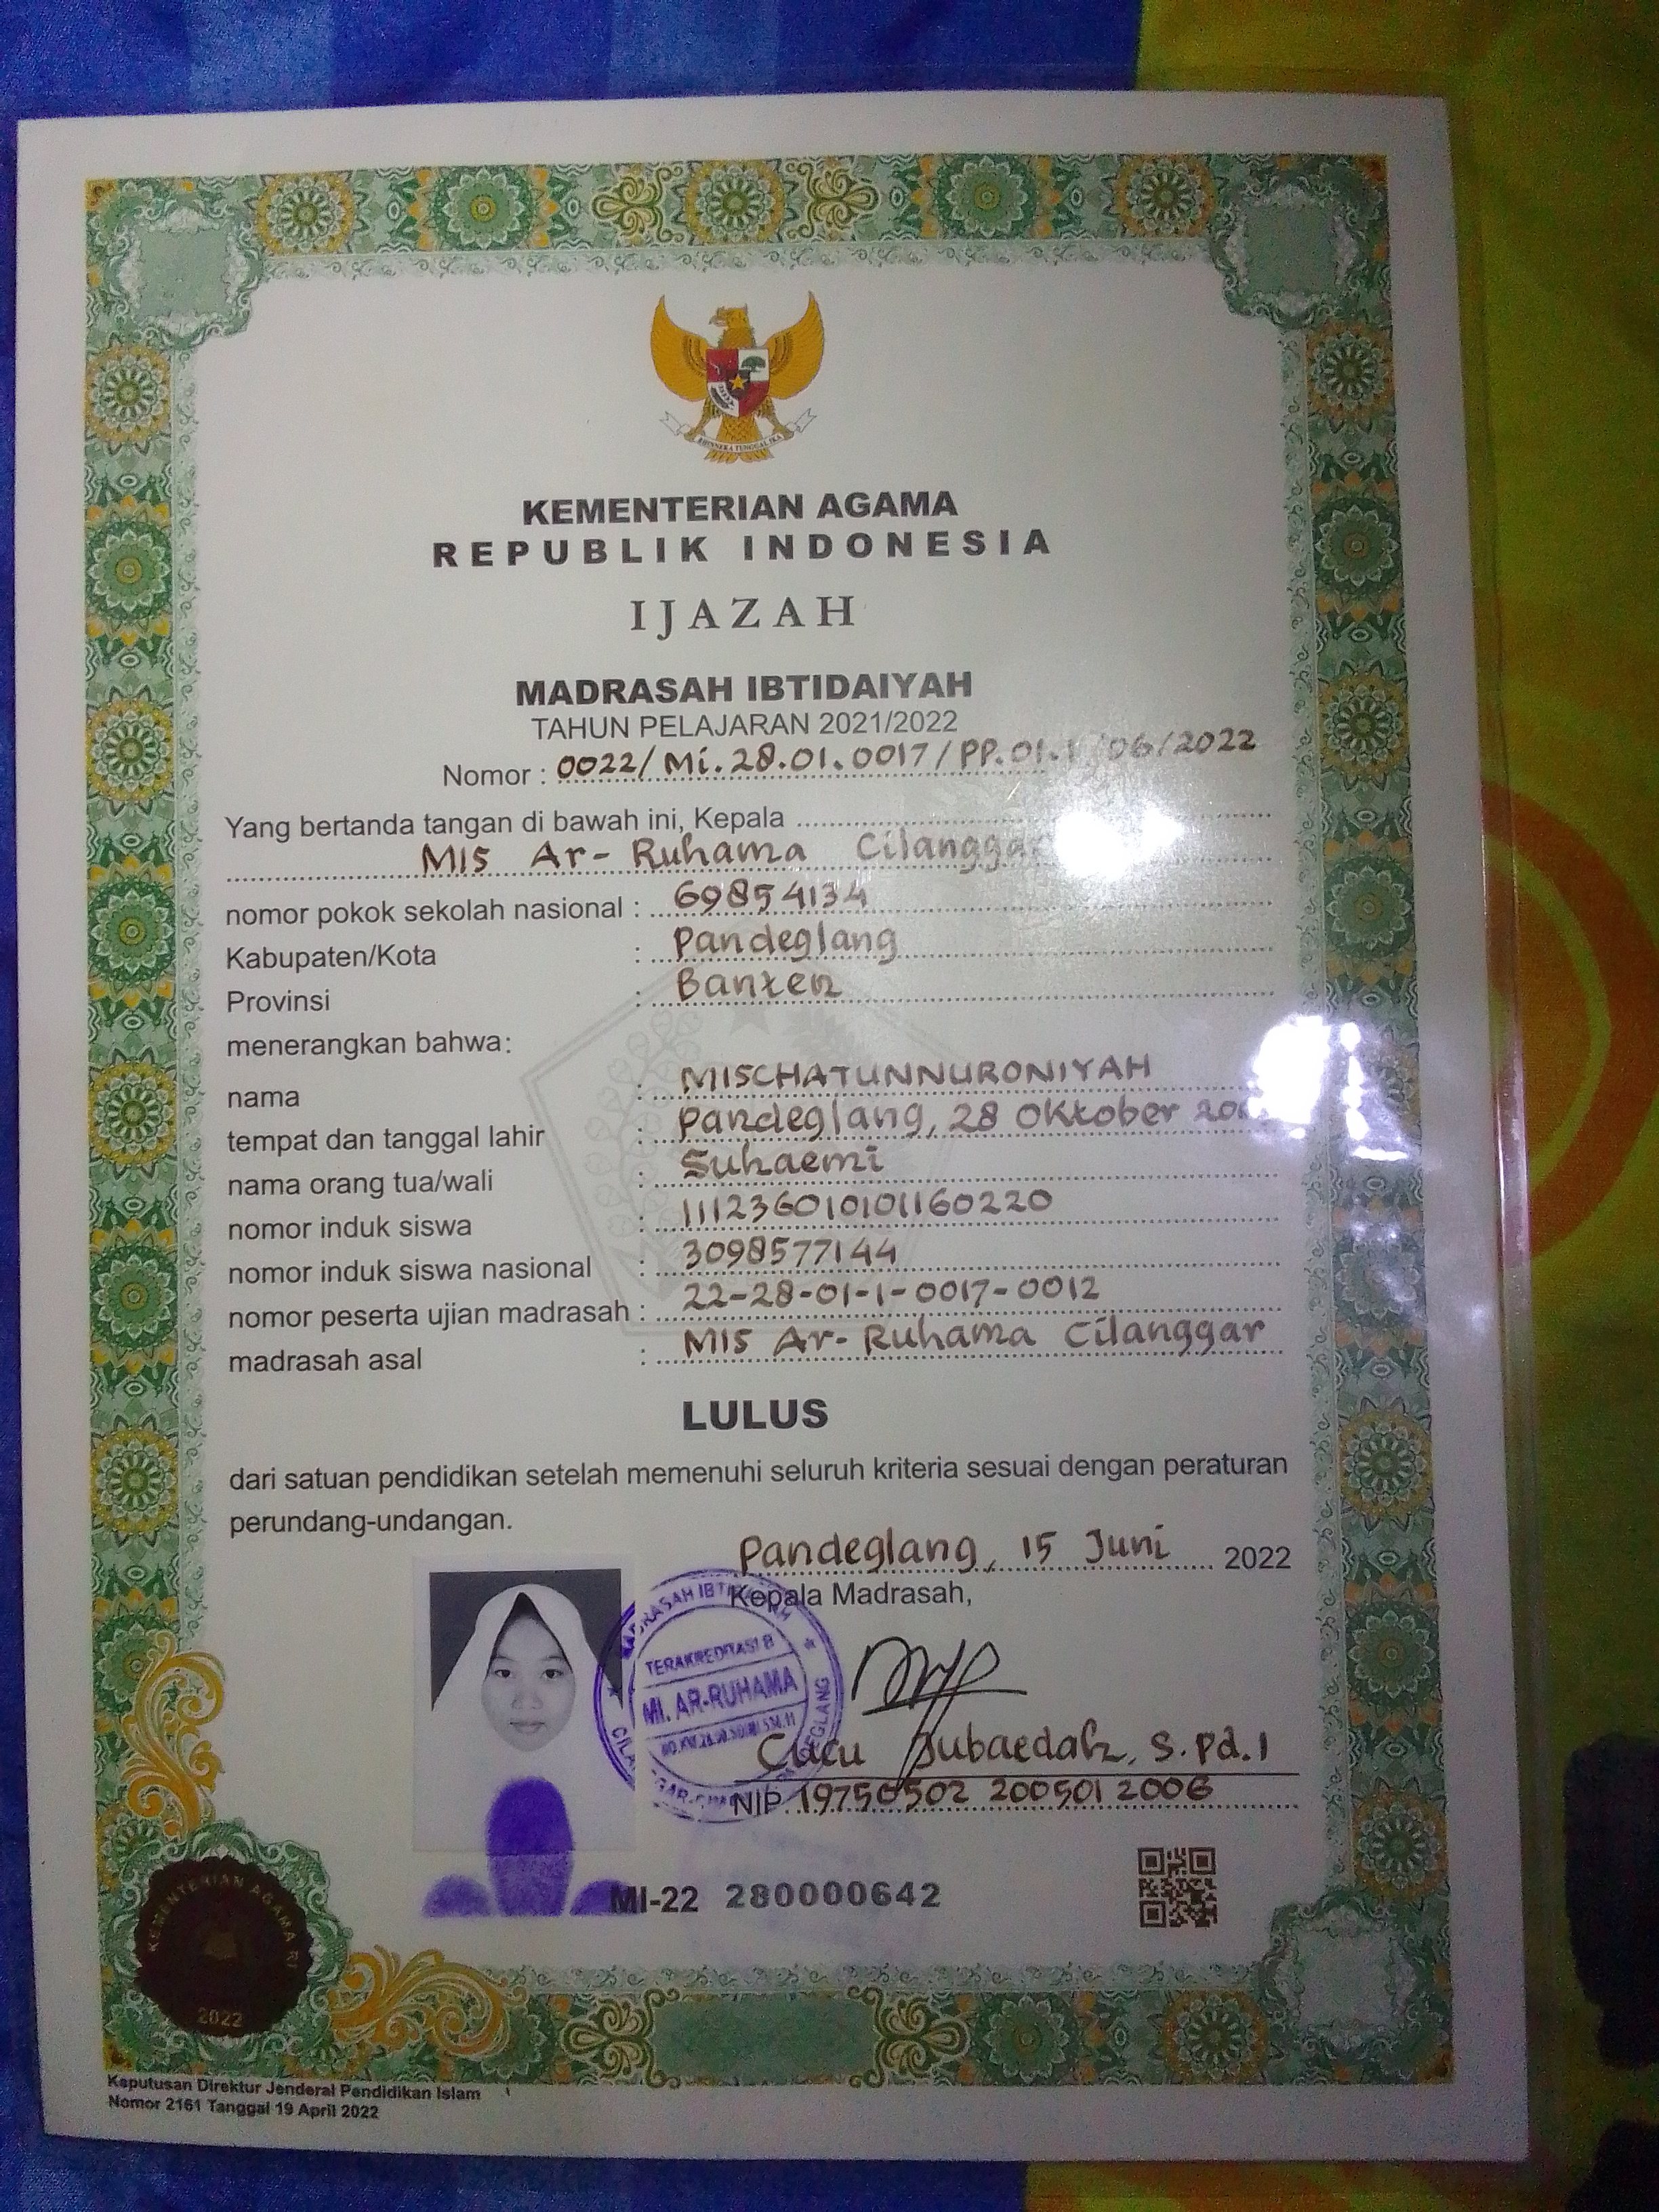 BHINNEKA TUNGGAL IKA
KEMENTERIAN AGAMA
REPUBLIK INDONESIA
IJAZAH
MADRASAH IBTIDAIYAH
TAHUN PELAJARAN 2021/2022
Nomor : 0022/Mi.28.01.0017/PP.01.1/06/2022
Yang bertanda tangan di bawah ini, Kepala
MIS Ar-Ruhama Cilanggar
nomor pokok sekolah nasional : 69854134
Kabupaten/Kota : Pandeglang
Provinsi : Banten
menerangkan bahwa:
nama : MISCHATUNNURONIYAH
tempat dan tanggal lahir : Pandeglang, 28 Oktober
nama orang tua/wali : Suhaemi
nomor induk siswa : 111236010101160220
nomor induk siswa nasional : 3098577144
nomor peserta ujian madrasah : 22-28-01-1-0017-0012
madrasah asal : MIS Ar-Ruhama Cilanggar
LULUS
dari satuan pendidikan setelah memenuhi seluruh kriteria sesuai dengan peraturan
perundang-undangan.
Pandeglang, 15 Juni 2022
Kepala Madrasah,
TERAKREDITASI B
MI. AR-RUHAMA
Cucu Jubaedah, S.Pd.I
NIP. 19750502 200501 2006
MI-22 280000642
KEMENTERIAN AGAMA RI
2022
Keputusan Direktur Jenderal Pendidikan Islam
Nomor 2161 Tanggal 19 April 2022